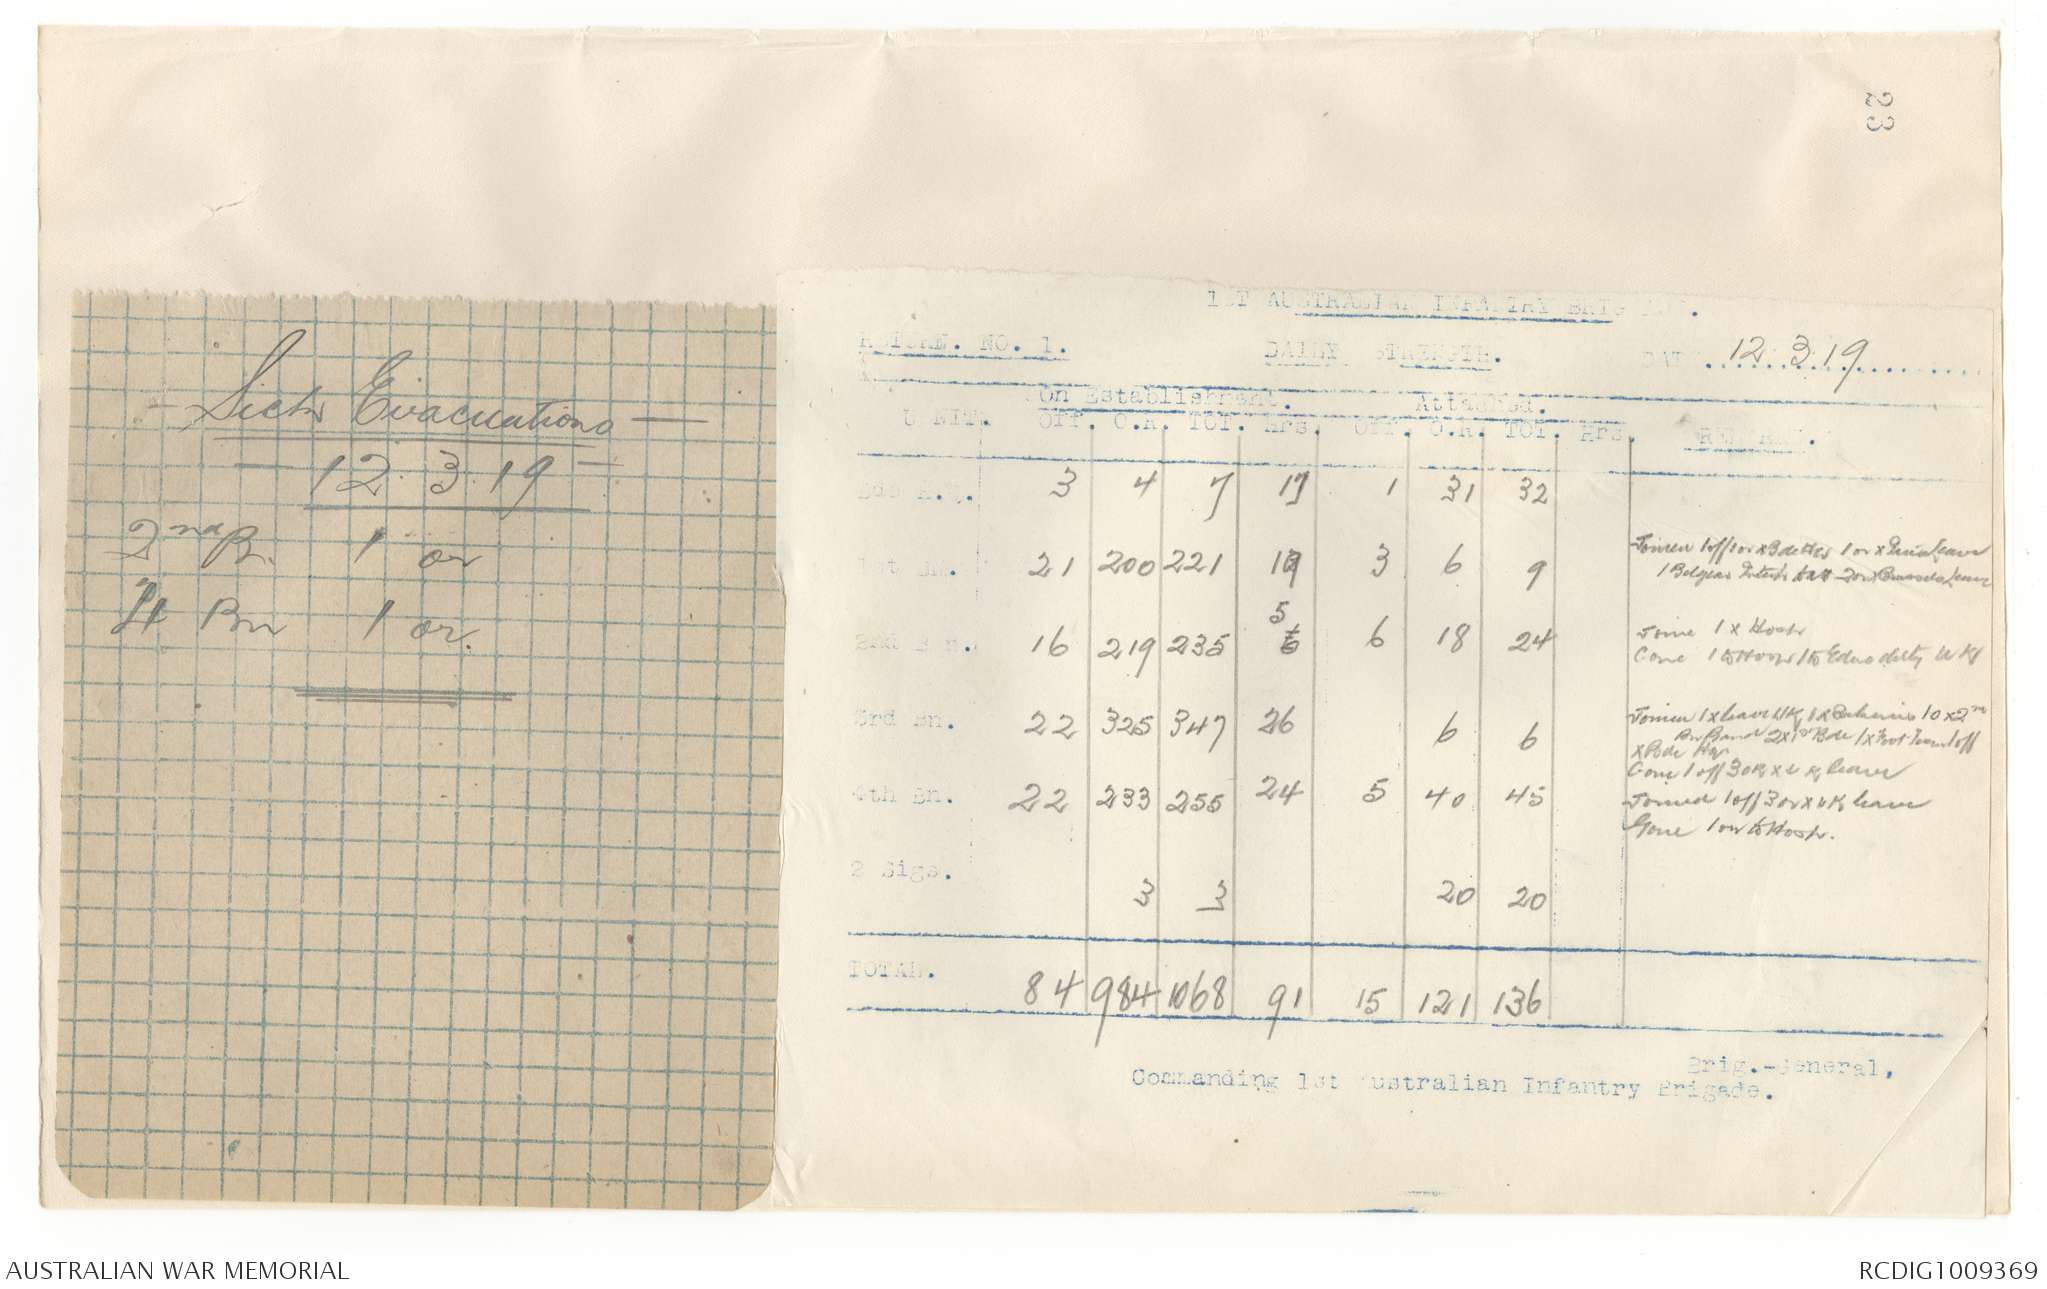 23
- Sick Evacuations -
- 12.3.19 -
2nd Bn. 1 or
4 Bn 1 or.
1ST AUSTRALIAN INFANTRY BRIG .
RETURN. NO. 1. DAILY STRENGTH. DAT 12.3.19
On Establishment. Attached.
UNIT. Off. O.R. TOT. Hrs. Off. O.R. TOT. Hrs. REMARKS.
Bde H.Q. 3 4 7 17 1 31 32
1st Bn. 21 200 221 19 3 6 9
Joined 1 off 1 or x Bde Hqs 1 or x Leave
1 Belgian 2 or x Brussels Leave
2nd Bn. 16 219 235 5 6 6 18 24
Joined 1 x Hosp
Gone 1 to Hosp 1 to Educ duty U K
3rd Bn. 22 325 347 26 6 6
Joined 1 x leave UK, 1 x 10 x 2nd
Bn Band 2 x 1st Bde 1 x Foot Team 1 off
x Bde Hqr
Gone 1 off 3 OR x U K leave
4th Bn. 22 233 255 24 5 40 45
Joined 1 off 3 or x UK leave
Gone 1 or to Hosp.
2 Sigs. 3 3 20 20
TOTAL. 84 984 1068 91 15 121 136
Brig.-General,
Commanding 1st Australian Infantry Brigade.
AUSTRALIAN WAR MEMORIAL
RCDIG1009369